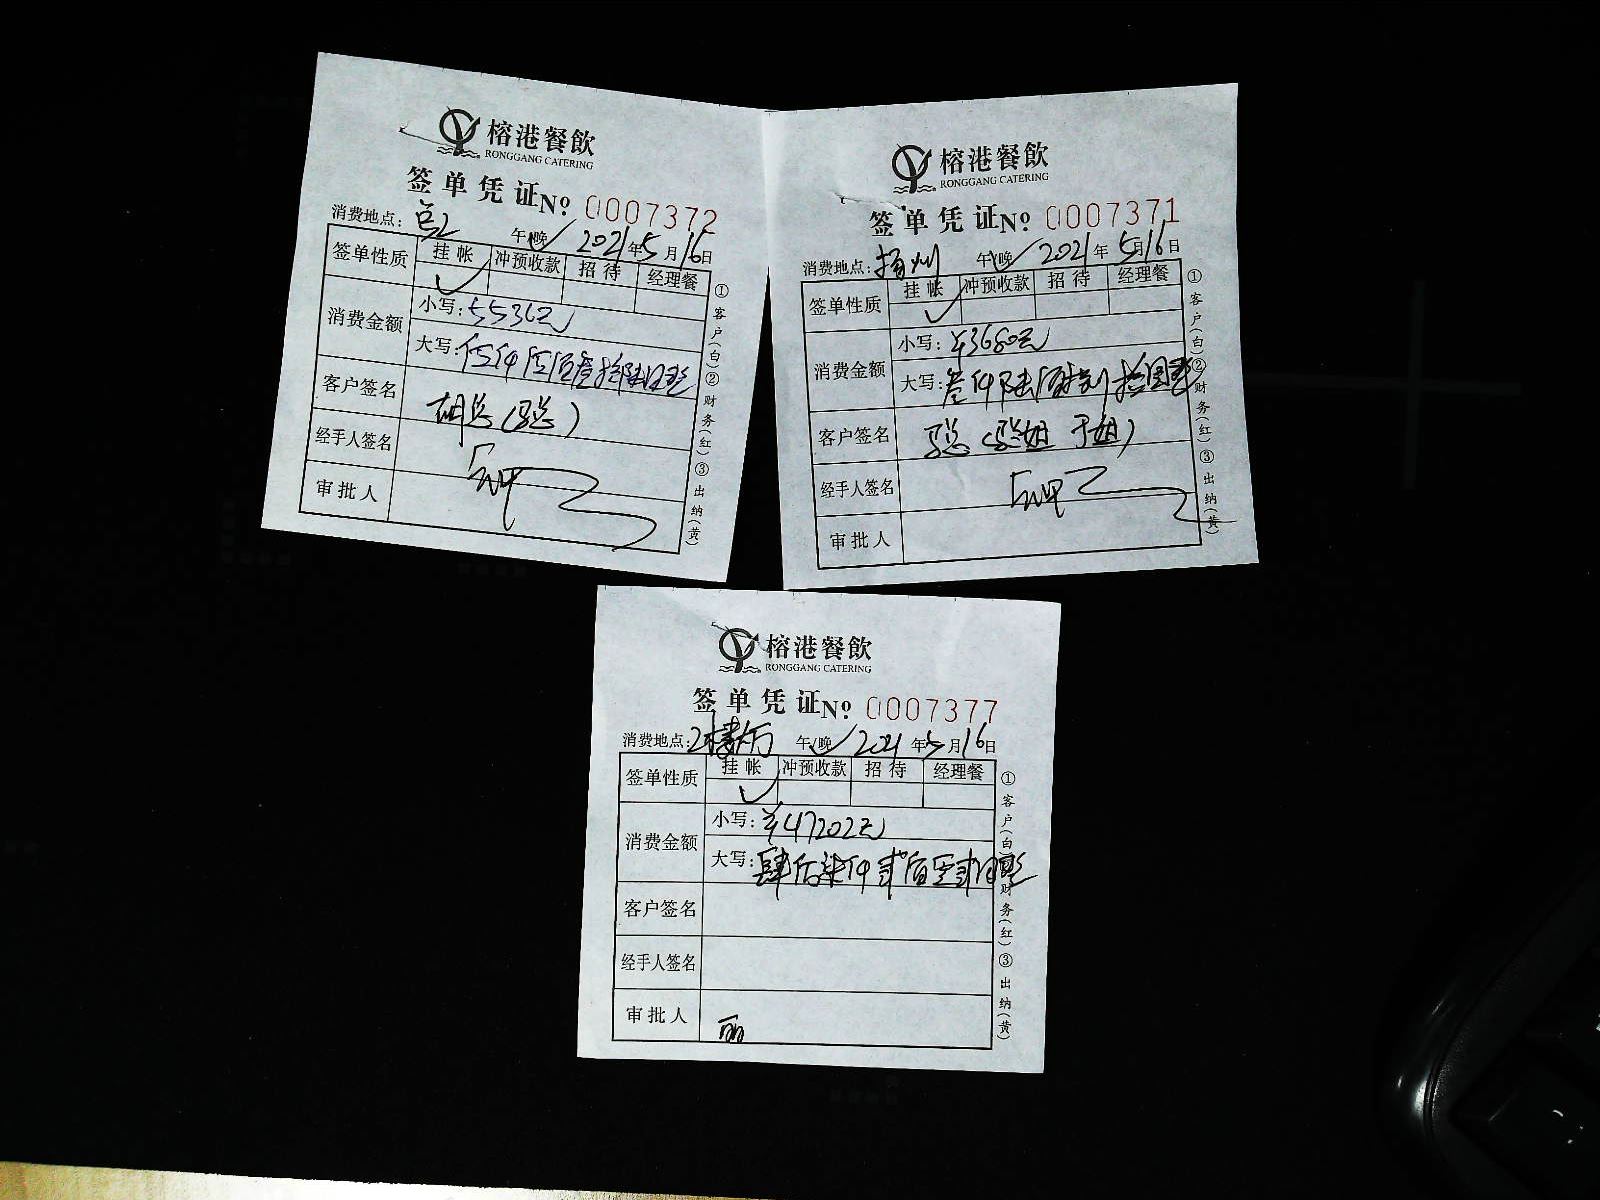 榕港餐飲
RONGGANG CATERING
签单凭证No 0007372
消费地点: 午/晚✓ 2021年5月16日
签单性质 挂帐 冲预收款 招待 经理餐
✓
消费金额 小写: 5536元
大写: 伍仟伍佰叁拾陆元整
客户签名 胡总()
经手人签名
审批人
①客户(白)②财务(红)③出纳(黄)
榕港餐飲
RONGGANG CATERING
签单凭证No 0007371
消费地点: 扬州 午/晚✓ 2021年5月16日
签单性质 挂帐 冲预收款 招待 经理餐
✓
消费金额 小写: ¥3680元
大写: 叁仟陆佰捌拾圆整
客户签名
经手人签名
审批人
①客户(白)②财务(红)③出纳(黄)
榕港餐飲
RONGGANG CATERING
签单凭证No 0007377
消费地点: 2楼 午/晚✓ 2021年5月16日
签单性质 挂帐 冲预收款 招待 经理餐
✓
消费金额 小写: ¥47202元
大写: 肆万柒仟贰佰零贰元整
客户签名
经手人签名
审批人 丽
①客户(白)②财务(红)③出纳(黄)